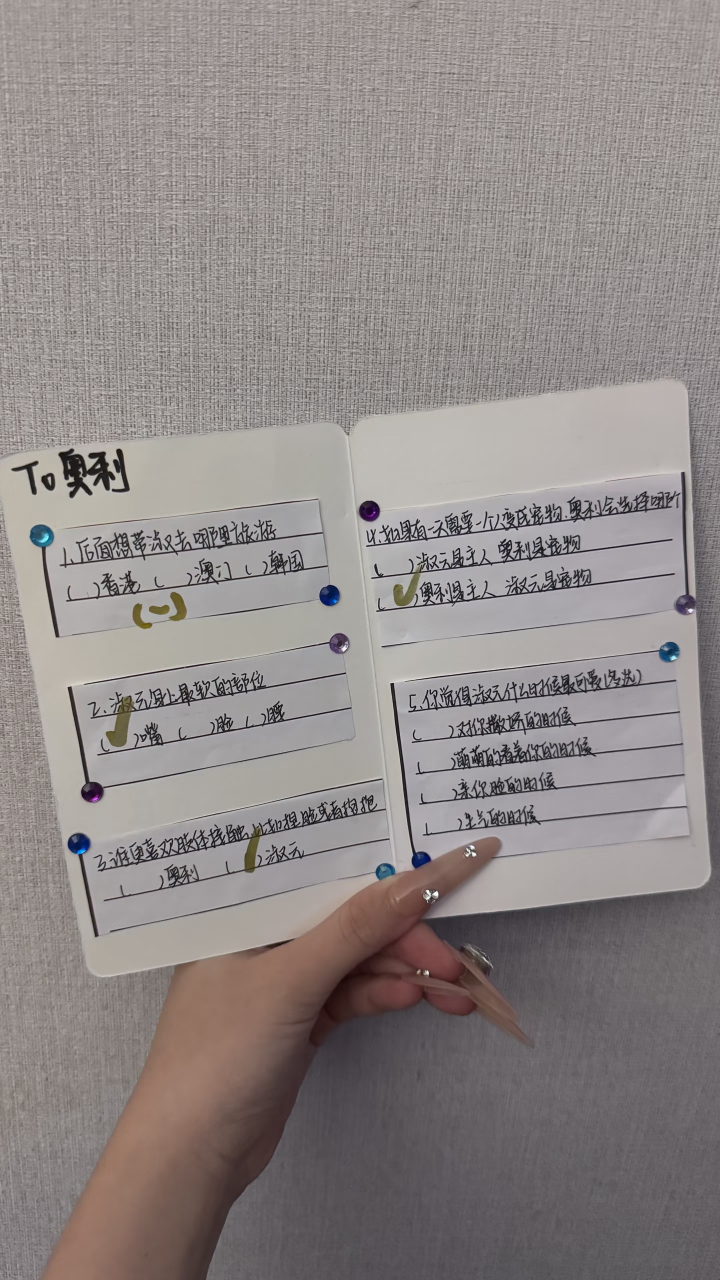 To奥利
1.后面想带淑元去哪里旅游
( )香港 ( )澳门 ( )韩国
(~)
2.淑元身上最软的部位
(✓)嘴 ( )脸 ( )腰
3.谁更喜欢肢体接触 比如捏脸或者抱抱
( )奥利 (✓)淑元
4.如果有一天需要一个人变成宠物.奥利会选择哪个
( )淑元是主人 奥利是宠物
(✓)奥利是主人 淑元是宠物
5.你觉得淑元什么时候最可爱(多选)
( )对你撒娇的时候
( )萌萌的看着你的时候
( )亲你脸的时候
( )生气的时候